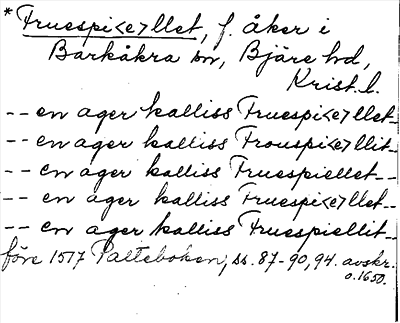 * Fruespi<e>llet, f. åker i
Barkåkra sn, Bjäre hd,
Krist. l.
-- en ager kalliss Fruespi<e>llet--
-- en ager kalliss Frouspi<e>llit--
-- en ager kalliss Fruespiellet--
-- en ager kalliss Fruespi<e>llet--
-- en ager kalliss Fruespiellit--
före 1517 Palteboken, ss. 87-90, 94. avskr.
o. 1650.